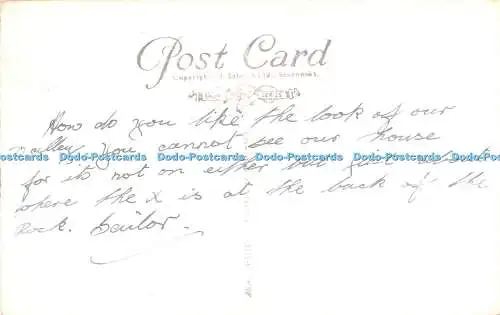 Post Card
How do you like the look of our
valley. You cannot see our house
Dodo-Postcards Dodo-Postcards Dodo-Postcards Dodo-Postcards Dodo-Postcards Dodo-Postcards Dodo-Postcards
for its not on either but just about
where the x is at the back of the
Rock.